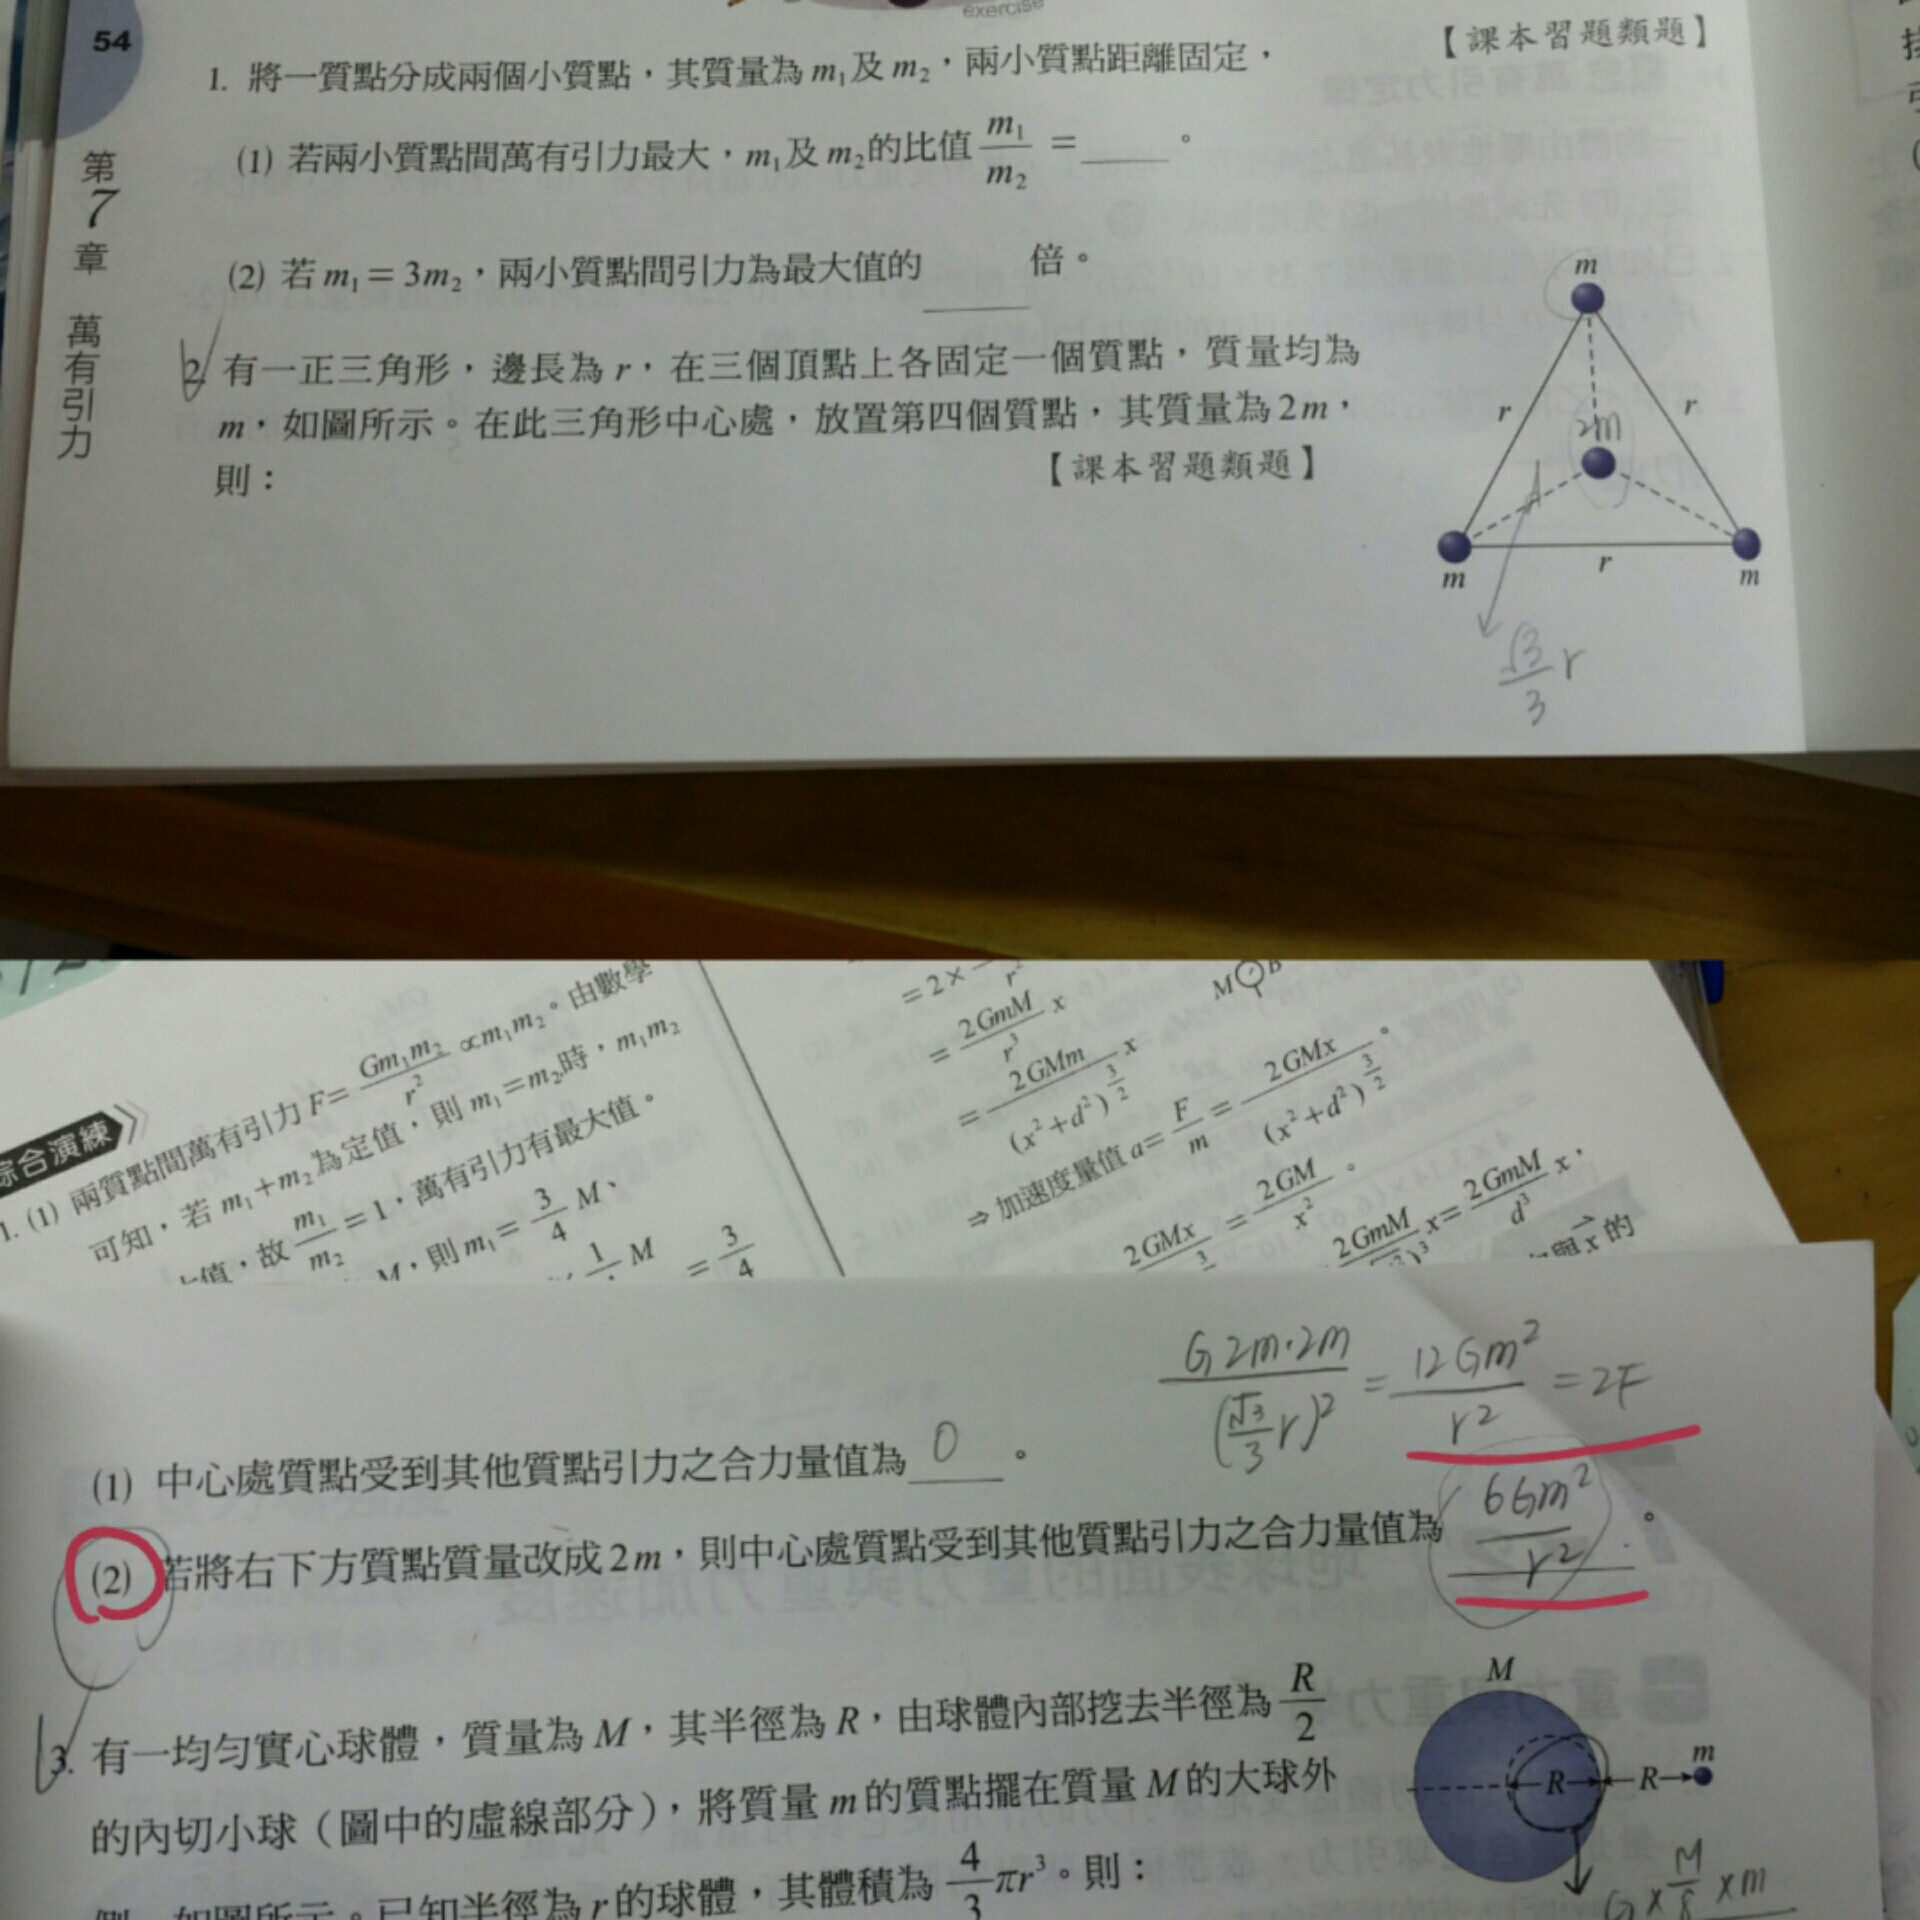 exercise
54
第7章 萬有引力
【課本習題類題】
1. 將一質點分成兩個小質點，其質量為 m₁ 及 m₂，兩小質點距離固定，
(1) 若兩小質點間萬有引力最大，m₁ 及 m₂ 的比值 m₁/m₂ = ____。
(2) 若 m₁ = 3m₂，兩小質點間引力為最大值的 ____ 倍。
2. 有一正三角形，邊長為 r，在三個頂點上各固定一個質點，質量均為
m，如圖所示。在此三角形中心處，放置第四個質點，其質量為 2m，
則：
【課本習題類題】
m
r
r
2m
m
r
m
√3/3 r
綜合演練
1. (1) 兩質點間萬有引力 F = Gm₁m₂/r² ∝ m₁m₂。由數學
可知，若 m₁ + m₂ 為定值，則 m₁ = m₂ 時，m₁m₂
值，故 m₁/m₂ = 1，萬有引力有最大值。
M，則 m₁ = 3/4 M、
M = 3/4
= 2×
= 2GmM/r³ x
= 2GMm/(x²+d²)^(3/2) x
⇒ 加速度量值 a = F/m = 2GMx/(x²+d²)^(3/2)。
2GMx = 2GM/x²。
2GmM x = 2GmM/d³ x，
x 的
M
B
G2m·2m/(√3/3 r)² = 12Gm²/r² = 2F
(1) 中心處質點受到其他質點引力之合力量值為 0 。
(2) 若將右下方質點質量改成 2m，則中心處質點受到其他質點引力之合力量值為 6Gm²/r² 。
3. 有一均勻實心球體，質量為 M，其半徑為 R，由球體內部挖去半徑為 R/2
的內切小球（圖中的虛線部分），將質量 m 的質點擺在質量 M 的大球外
側，如圖所示。已知半徑為 r 的球體，其體積為 4/3 πr³。則：
M
R
R
m
G × M/8 × m